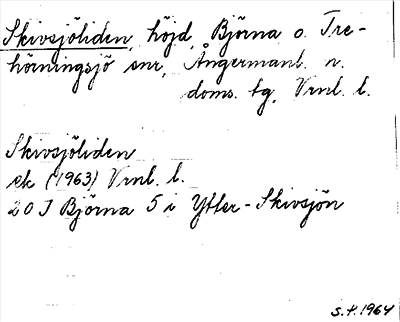 Skivsjöliden, höjd, Björna o. Tre-
hörningsjö snr, Ångermanl. n.
doms. tg, Vrnl. l.
Skivsjöliden
ek (1963) Vrnl. l.
20 J Björna 5 i Ytter-Skivsjön
S.H. 1964